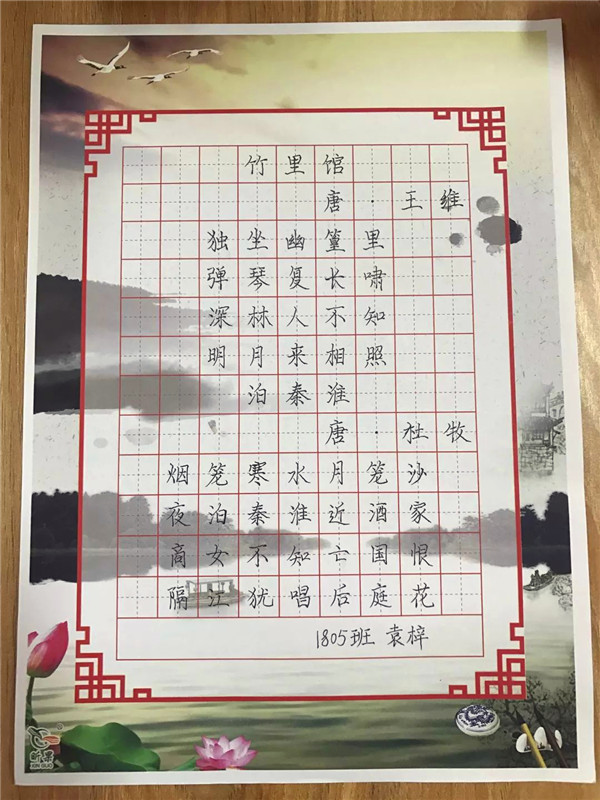 竹里馆
唐·王维
独坐幽篁里
弹琴复长啸
深林人不知
明月来相照
泊秦淮
唐·杜牧
烟笼寒水月笼沙
夜泊秦淮近酒家
商女不知亡国恨
隔江犹唱后庭花
1805班 袁梓